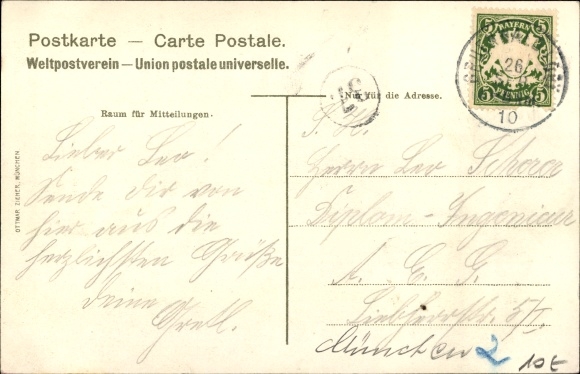 Postkarte — Carte Postale.
Weltpostverein — Union postale universelle.
Nur für die Adresse.
Raum für Mitteilungen.
OTTMAR ZIEHER, MÜNCHEN
5 BAYERN 5
5 PFENNIG 5
26
10
Lieber Leo!
Sende Dir von
hier aus die
herzlichsten Grüße
Deine
Gretl.
Herrn Leo Scherer
Diplom-Ingenieur
A. E. G.
München 2
10E